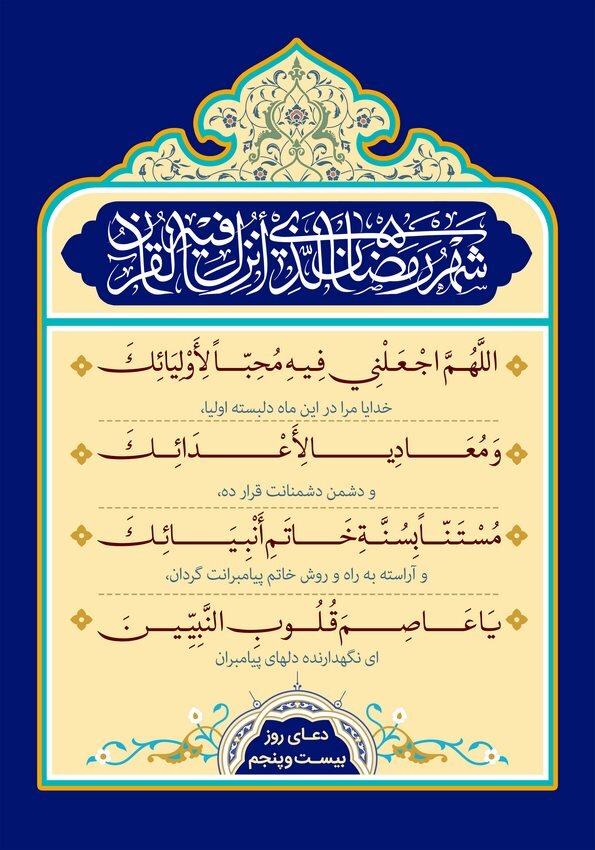 شَهْرُ رَمَضَانَ الَّذِي أُنْزِلَ فِيهِ الْقُرْآنُ
اللَّهُمَّ اجْعَلْنِي فِيهِ مُحِبّاً لِأَوْلِيَائِكَ
خدایا مرا در این ماه دلبسته اولیا،
وَ مُعَادِيا لِأَعْدَائِكَ
و دشمن دشمنانت قرار ده،
مُسْتَنّاً بِسُنَّةِ خَاتَمِ أَنْبِيَائِكَ
و آراسته به راه و روش خاتم پیامبرانت گردان،
يَا عَاصِمَ قُلُوبِ النَّبِيِّينَ
ای نگهدارنده دلهای پیامبران
دعای روز
بیست و پنجم